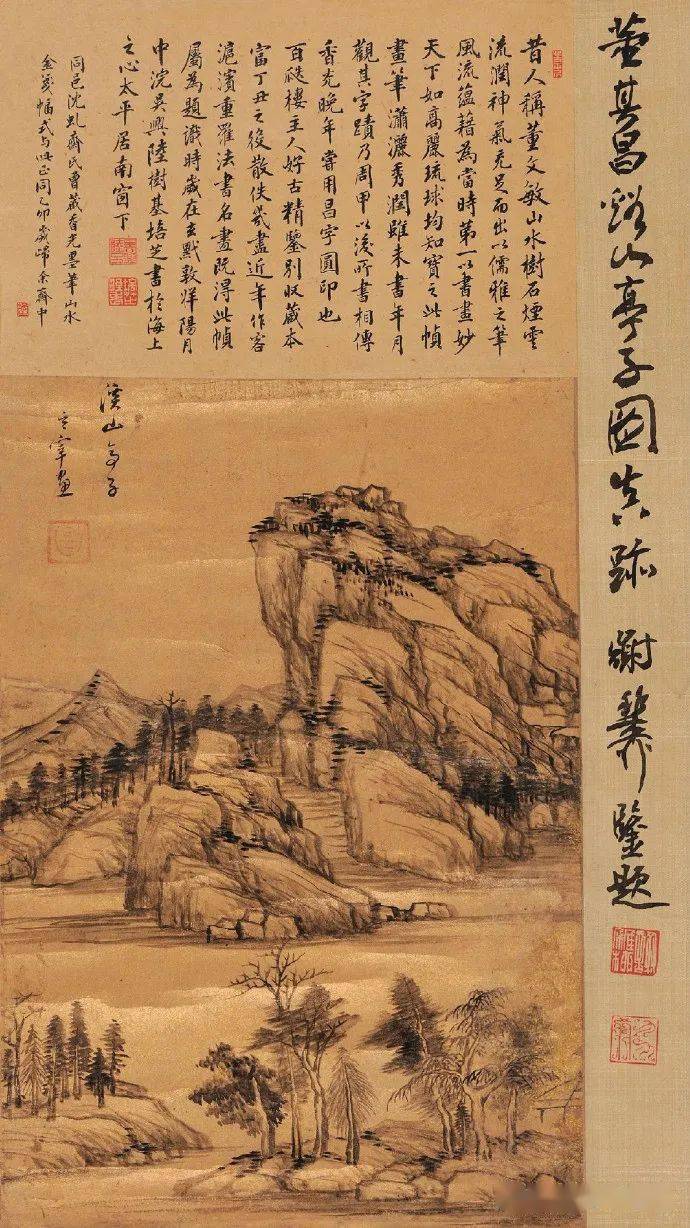 董其昌谿山亭子图真跡 谢稚柳鑒题
昔人稱董文敏山水樹石煙雲
流潤神氣充足而出以儒雅之筆
風流蘊藉為當時第一以書畫妙
天下如高麗琉球均知寶之此幀
畫筆瀟灑秀潤雖未書年月
觀其字蹟乃周甲以後所書相傳
香光晚年嘗用昌字圓印也
百緂樓主人好古精鑒别收藏本
富丁丑之後散佚幾盡近年作客
滬濱重羅法書名畫既得此幀
屬為題識時歲在玄黓敦牂陽月
中浣吳興陸樹基培芝書於海上
之心太平居南窗下
同邑沈虬齋氏曹藏香光墨筆山水
金箋幅式与此正同乙卯歲
溪山亭子
玄宰畫